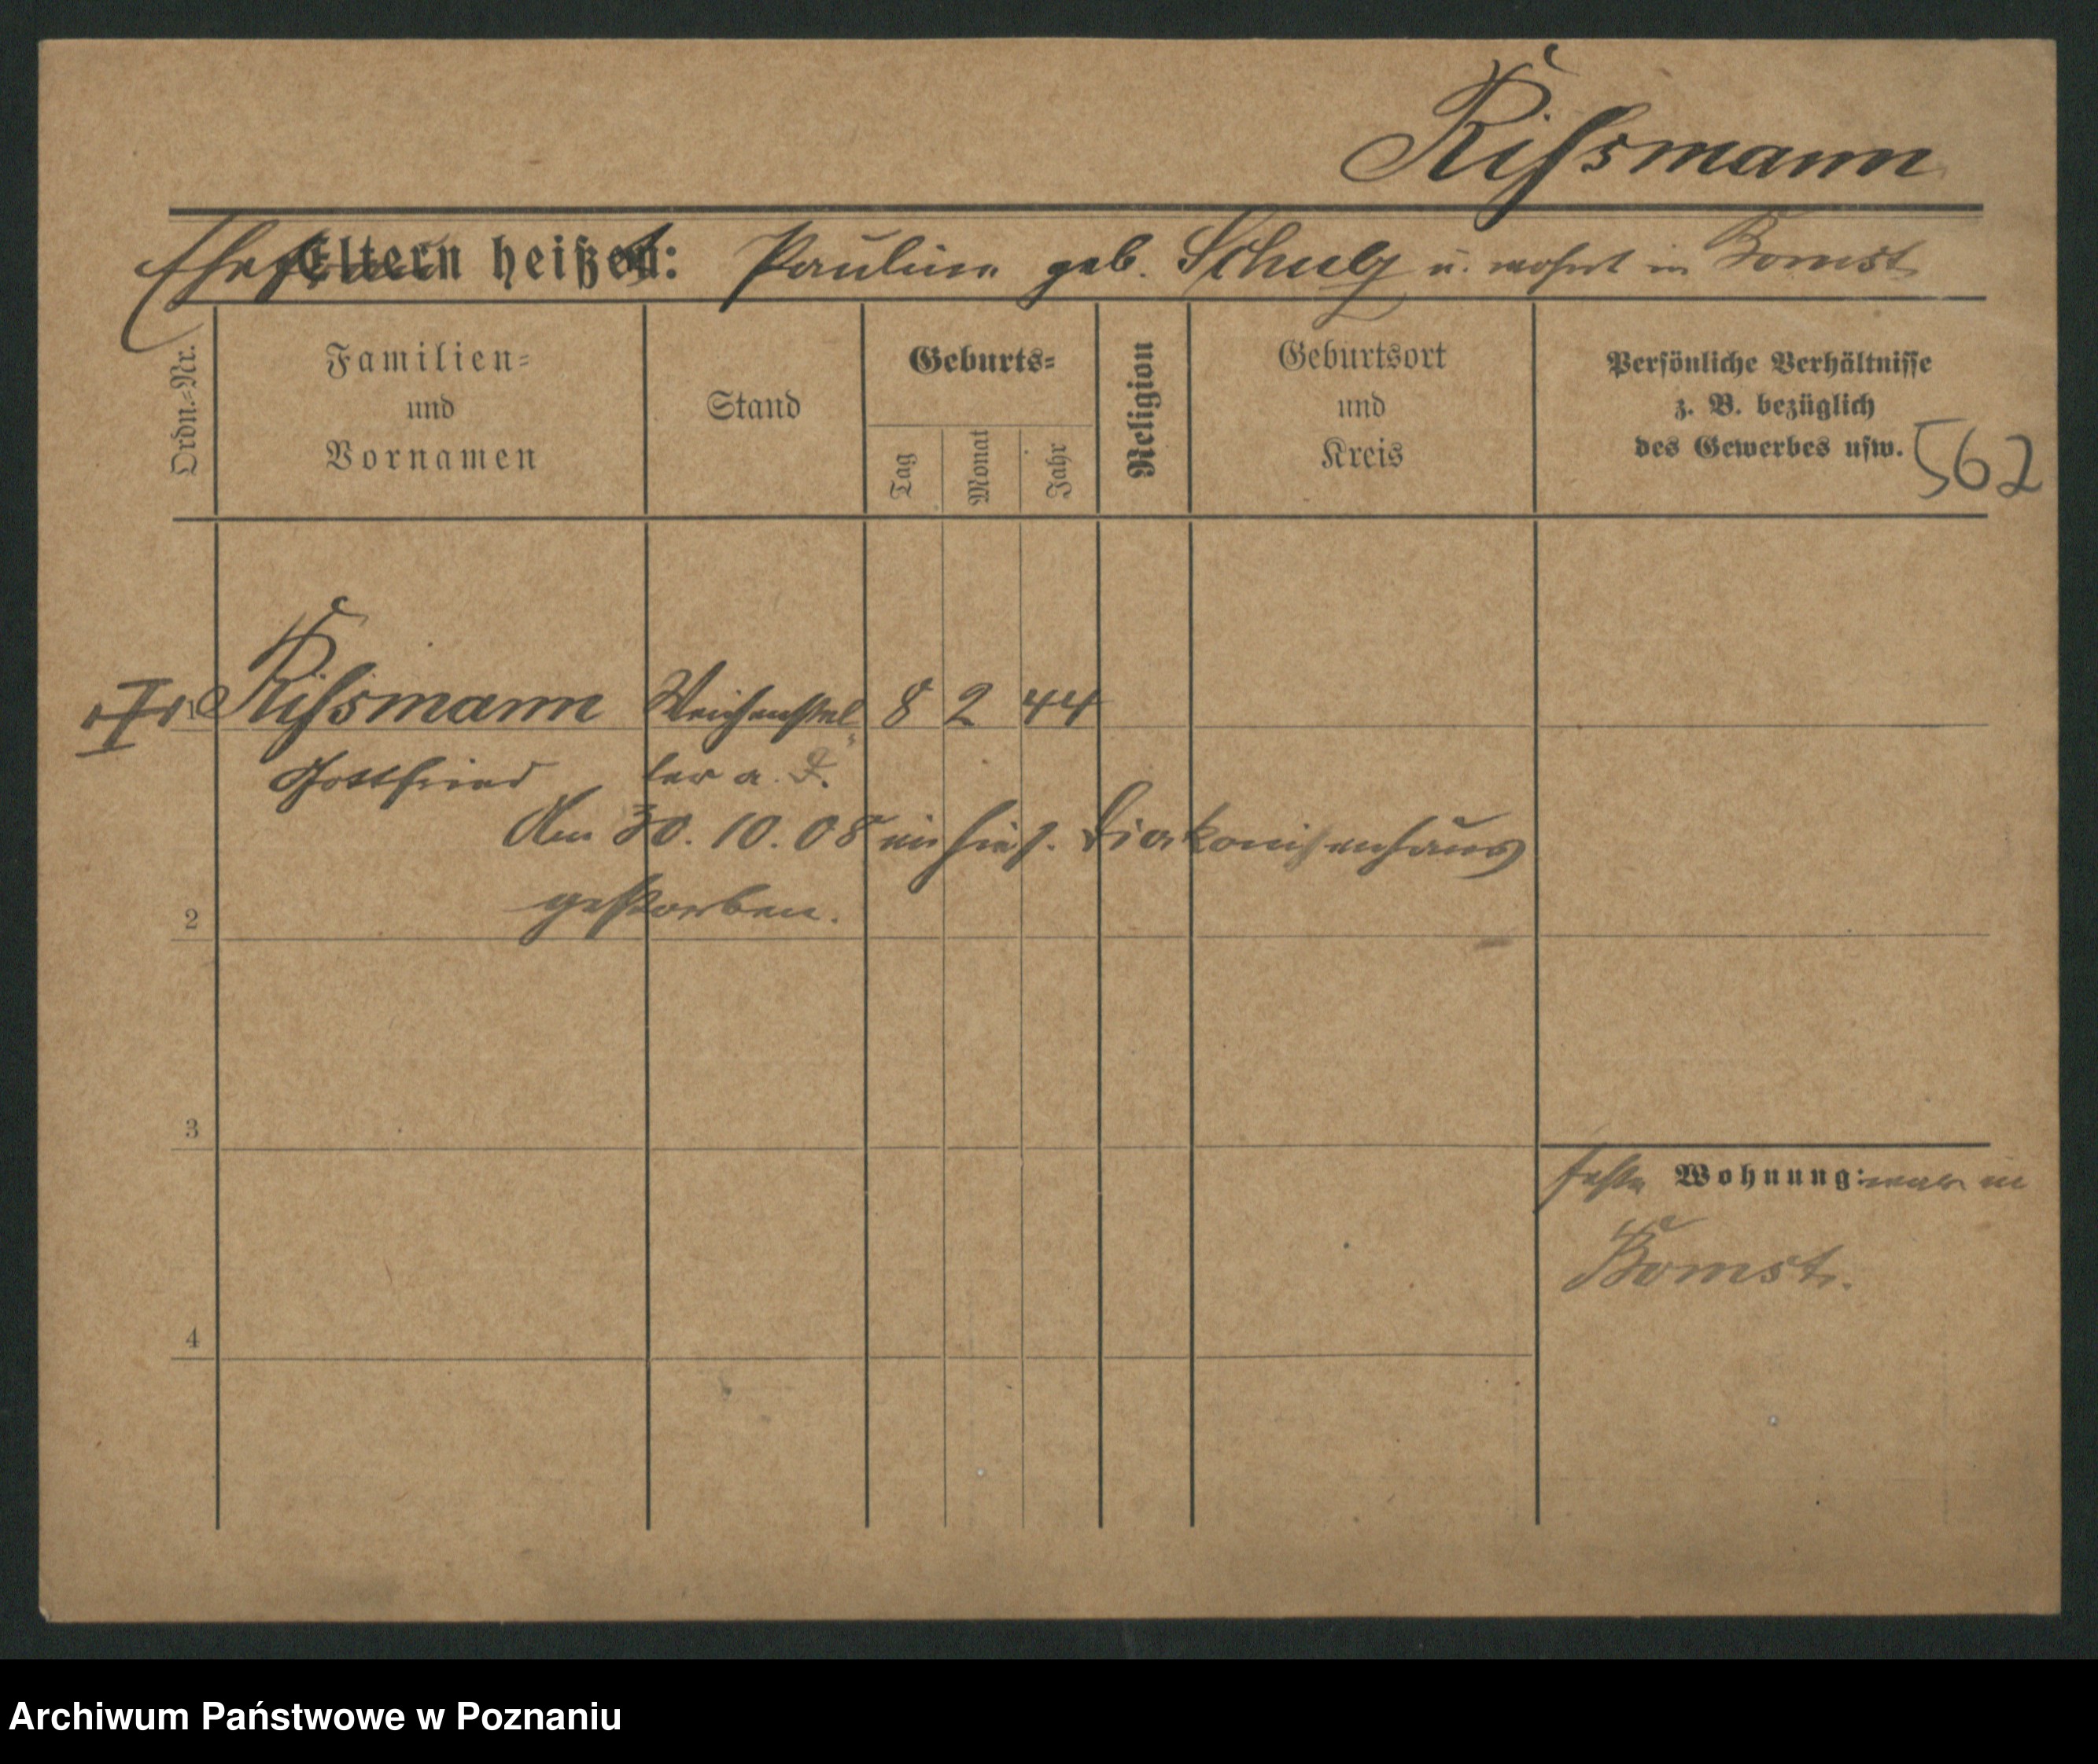 Rissmann
Ehefrau heißt: Pauline geb. Schulz u. wohnt in Bomst
Eltern heißen:
Ordn.-Nr.
Familien-
und
Vornamen
Stand
Geburts-
Tag
Monat
Jahr
Religion
Geburtsort
und
Kreis
Persönliche Verhältnisse
z. B. bezüglich
des Gewerbes usw.
562
1 Rissmann Weichenstel- 8 2 44
Gottfried ler a. D.
Am 30. 10. 08 im hies. Diakonissenhaus
gestorben.
2
3
feste Wohnung: war in
Bomst.
4
Archiwum Państwowe w Poznaniu